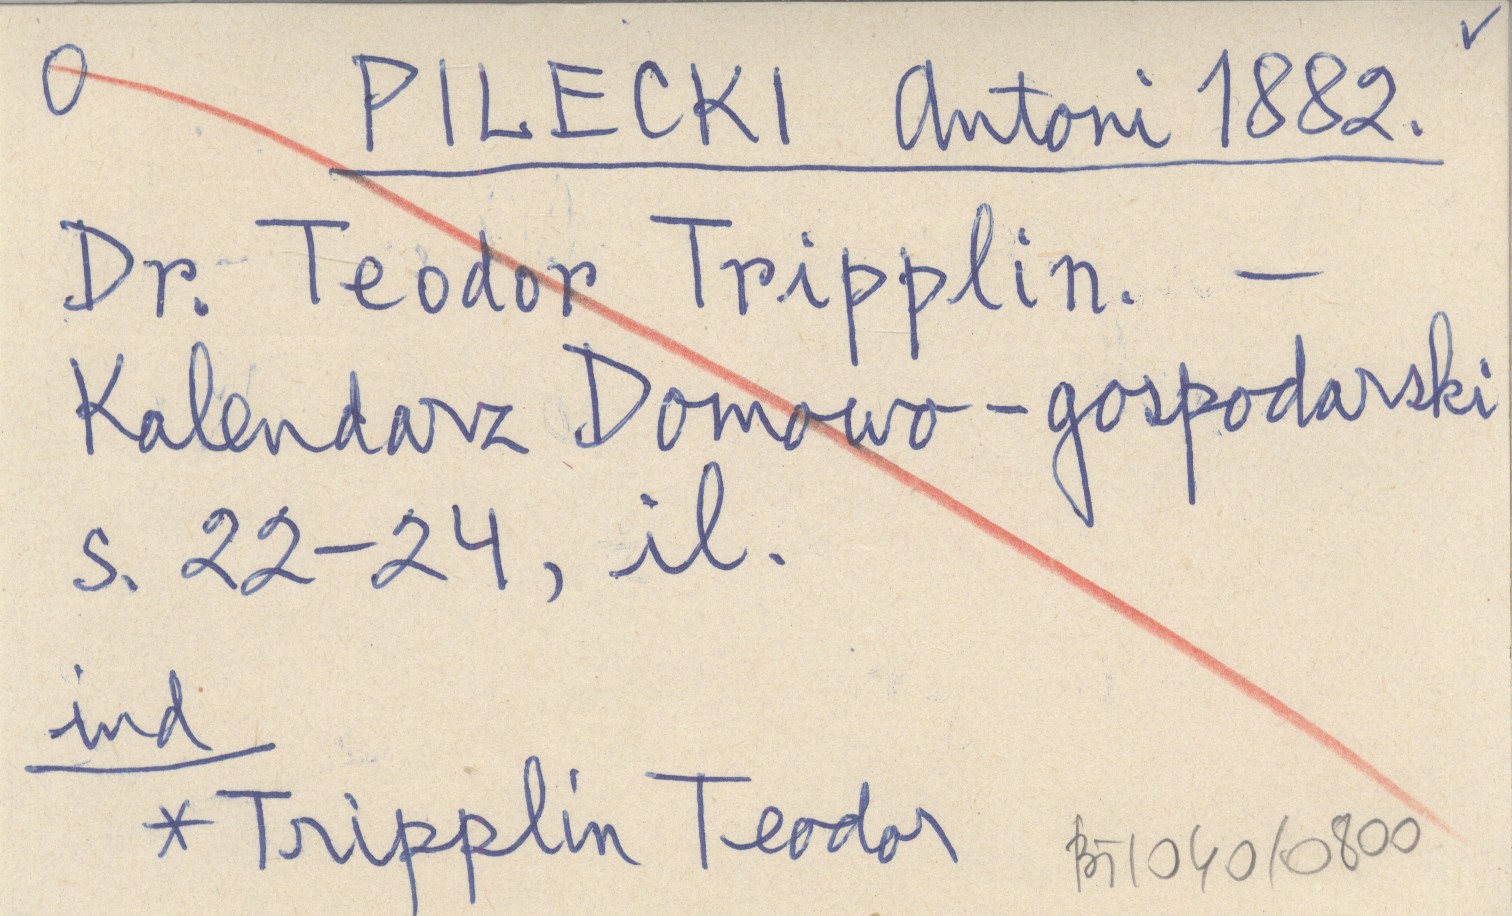 O PILECKI Antoni 1882.
Dr. Teodor Tripplin. —
Kalendarz Domowo-gospodarski
s. 22-24, il.
ind
* Tripplin Teodor